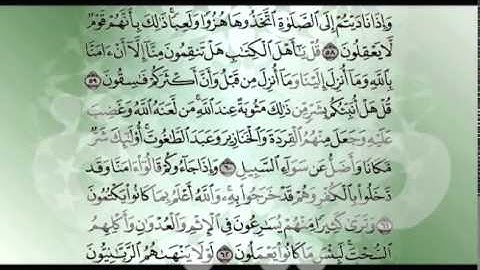 وَإِذَا نَادَيْتُمْ إِلَى ٱلصَّلَوٰةِ ٱتَّخَذُوهَا هُزُوًا وَلَعِبًا ۚ ذَٰلِكَ بِأَنَّهُمْ قَوْمٌ
لَّا يَعْقِلُونَ ٥٨ قُلْ يَٰٓأَهْلَ ٱلْكِتَٰبِ هَلْ تَنقِمُونَ مِنَّآ إِلَّآ أَنْ ءَامَنَّا
بِٱللَّهِ وَمَآ أُنزِلَ إِلَيْنَا وَمَآ أُنزِلَ مِن قَبْلُ وَأَنَّ أَكْثَرَكُمْ فَٰسِقُونَ ٥٩
قُلْ هَلْ أُنَبِّئُكُم بِشَرٍّ مِّن ذَٰلِكَ مَثُوبَةً عِندَ ٱللَّهِ ۚ مَن لَّعَنَهُ ٱللَّهُ وَغَضِبَ
عَلَيْهِ وَجَعَلَ مِنْهُمُ ٱلْقِرَدَةَ وَٱلْخَنَازِيرَ وَعَبَدَ ٱلطَّٰغُوتَ ۚ أُو۟لَٰٓئِكَ شَرٌّ
مَّكَانًا وَأَضَلُّ عَن سَوَآءِ ٱلسَّبِيلِ ٦٠ وَإِذَا جَآءُوكُمْ قَالُوٓا۟ ءَامَنَّا وَقَد
دَّخَلُوا۟ بِٱلْكُفْرِ وَهُمْ قَدْ خَرَجُوا۟ بِهِۦ ۚ وَٱللَّهُ أَعْلَمُ بِمَا كَانُوا۟ يَكْتُمُونَ
٦١ وَتَرَىٰ كَثِيرًا مِّنْهُمْ يُسَٰرِعُونَ فِى ٱلْإِثْمِ وَٱلْعُدْوَٰنِ وَأَكْلِهِمُ
ٱلسُّحْتَ ۚ لَبِئْسَ مَا كَانُوا۟ يَعْمَلُونَ ٦٢ لَوْلَا يَنْهَىٰهُمُ ٱلرَّبَّٰنِيُّونَ